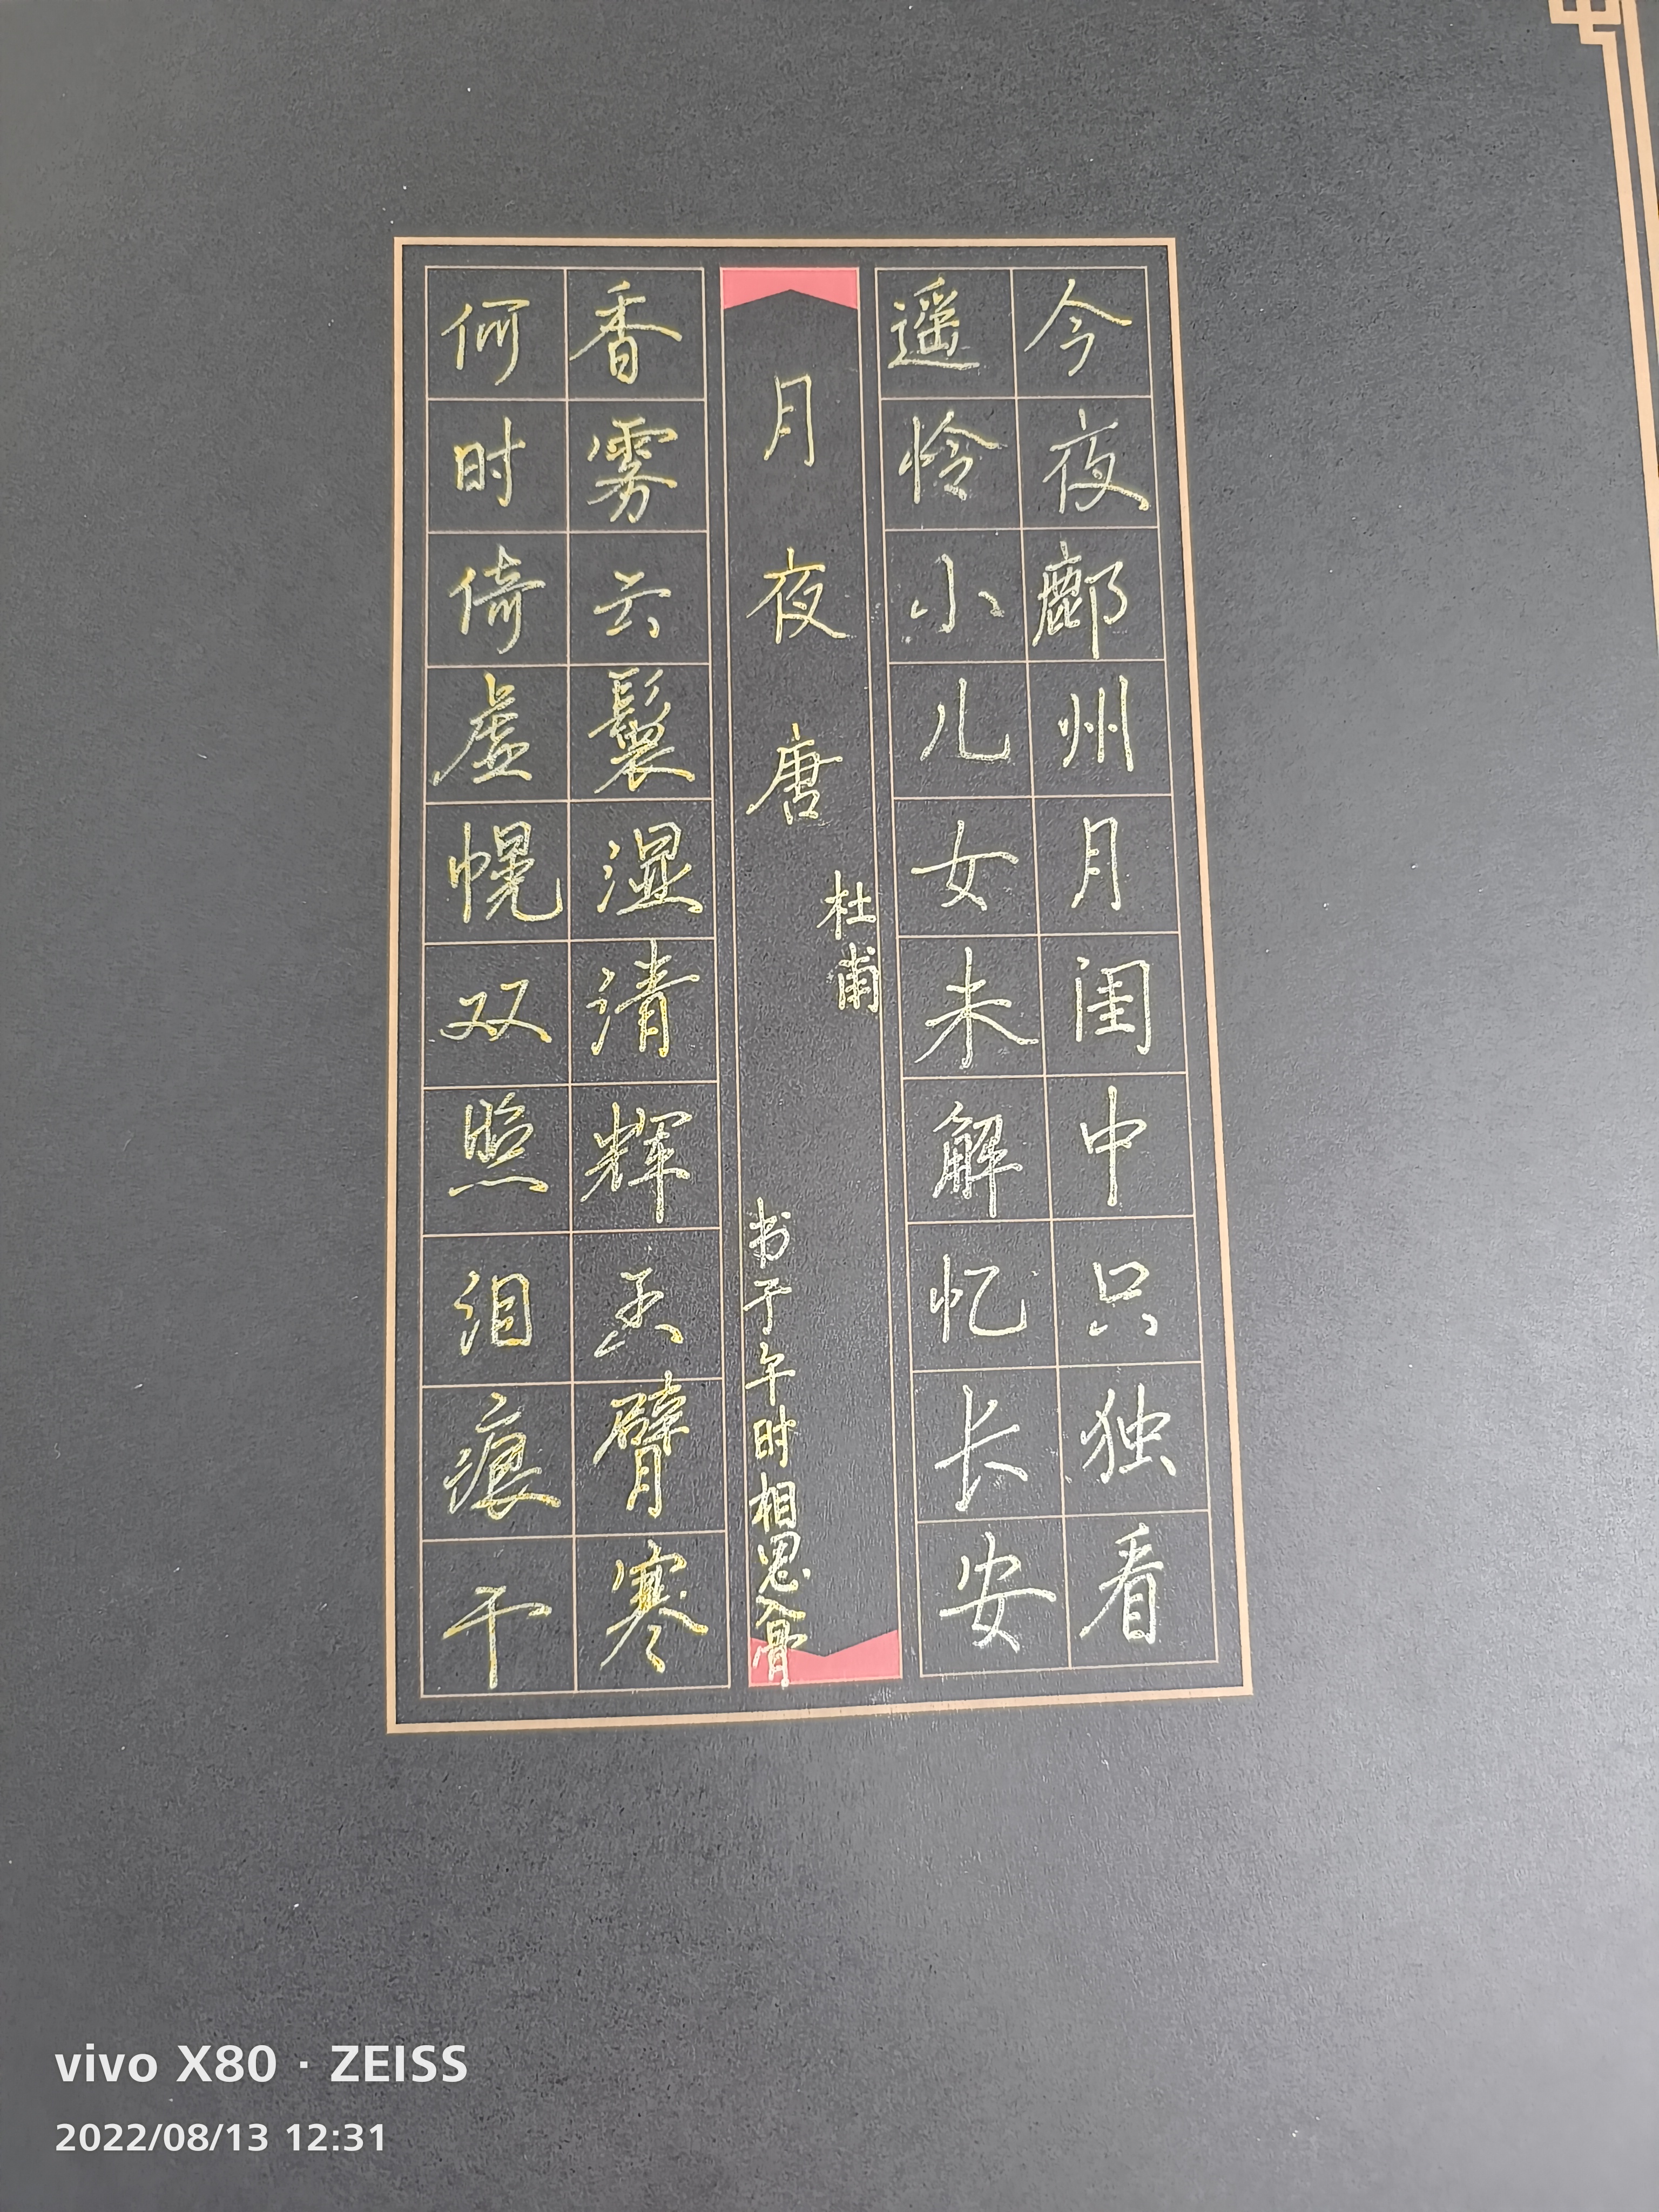 今夜鄜州月闺中只独看
遥怜小儿女未解忆长安
月夜 唐
杜甫
书于午时相思入骨
香雾云鬟湿清辉玉臂寒
何时倚虚幌双照泪痕干
vivo X80 · ZEISS
2022/08/13 12:31